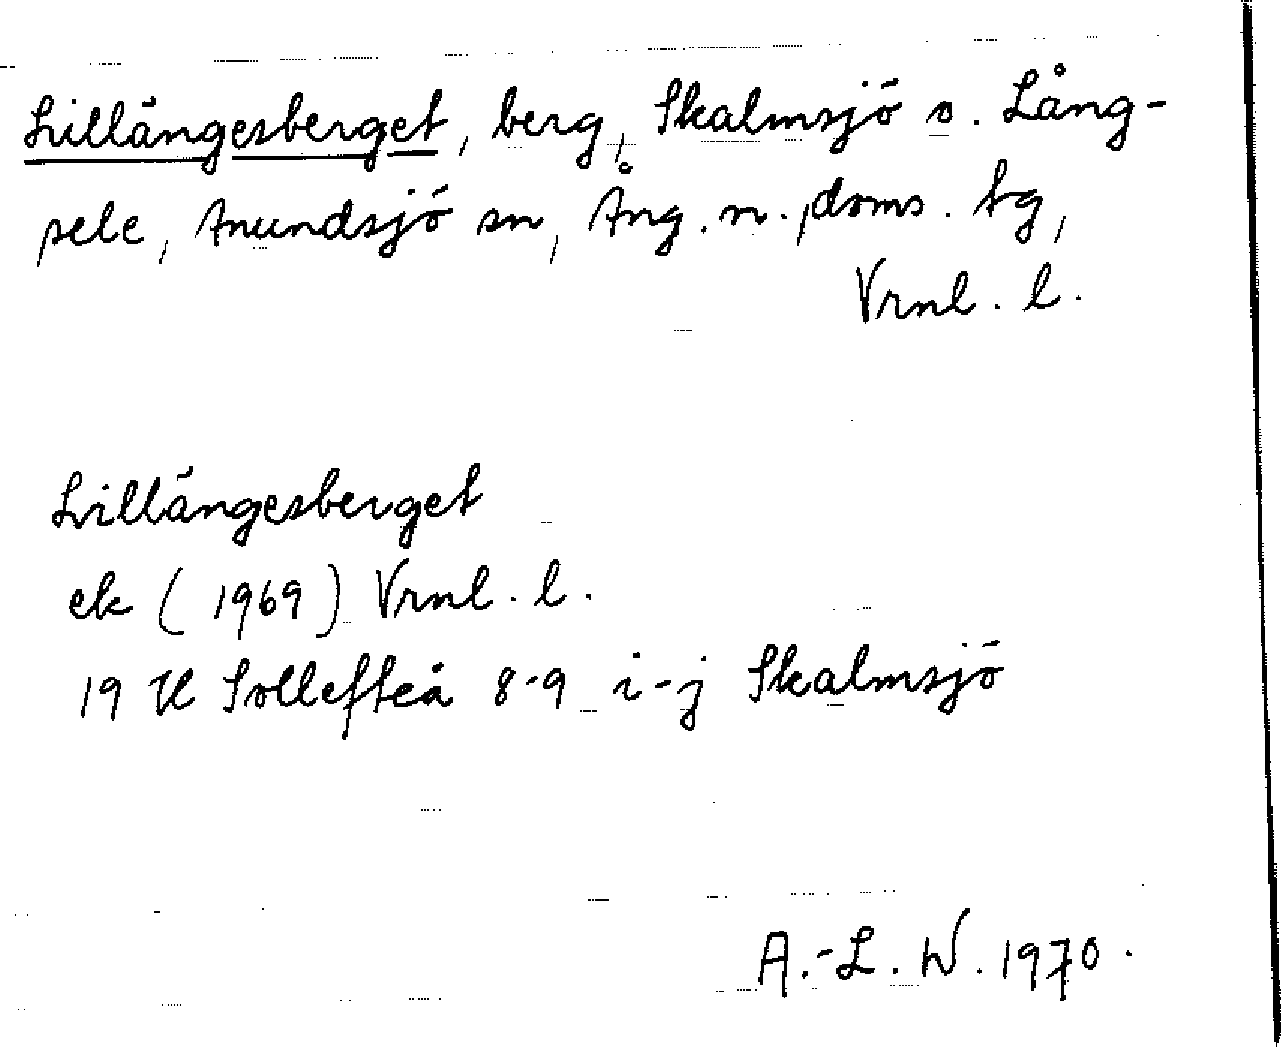 Lillängesberget, berg, Skalmsjö o. Lång-
sele, Anundsjö sn, Ång. n., doms. tg,
Vrnl. l.
Lillängesberget
ek (1969) Vrnl. l.
19 H Sollefteå 8-9 i-j Skalmsjö
A.-L. W. 1970.